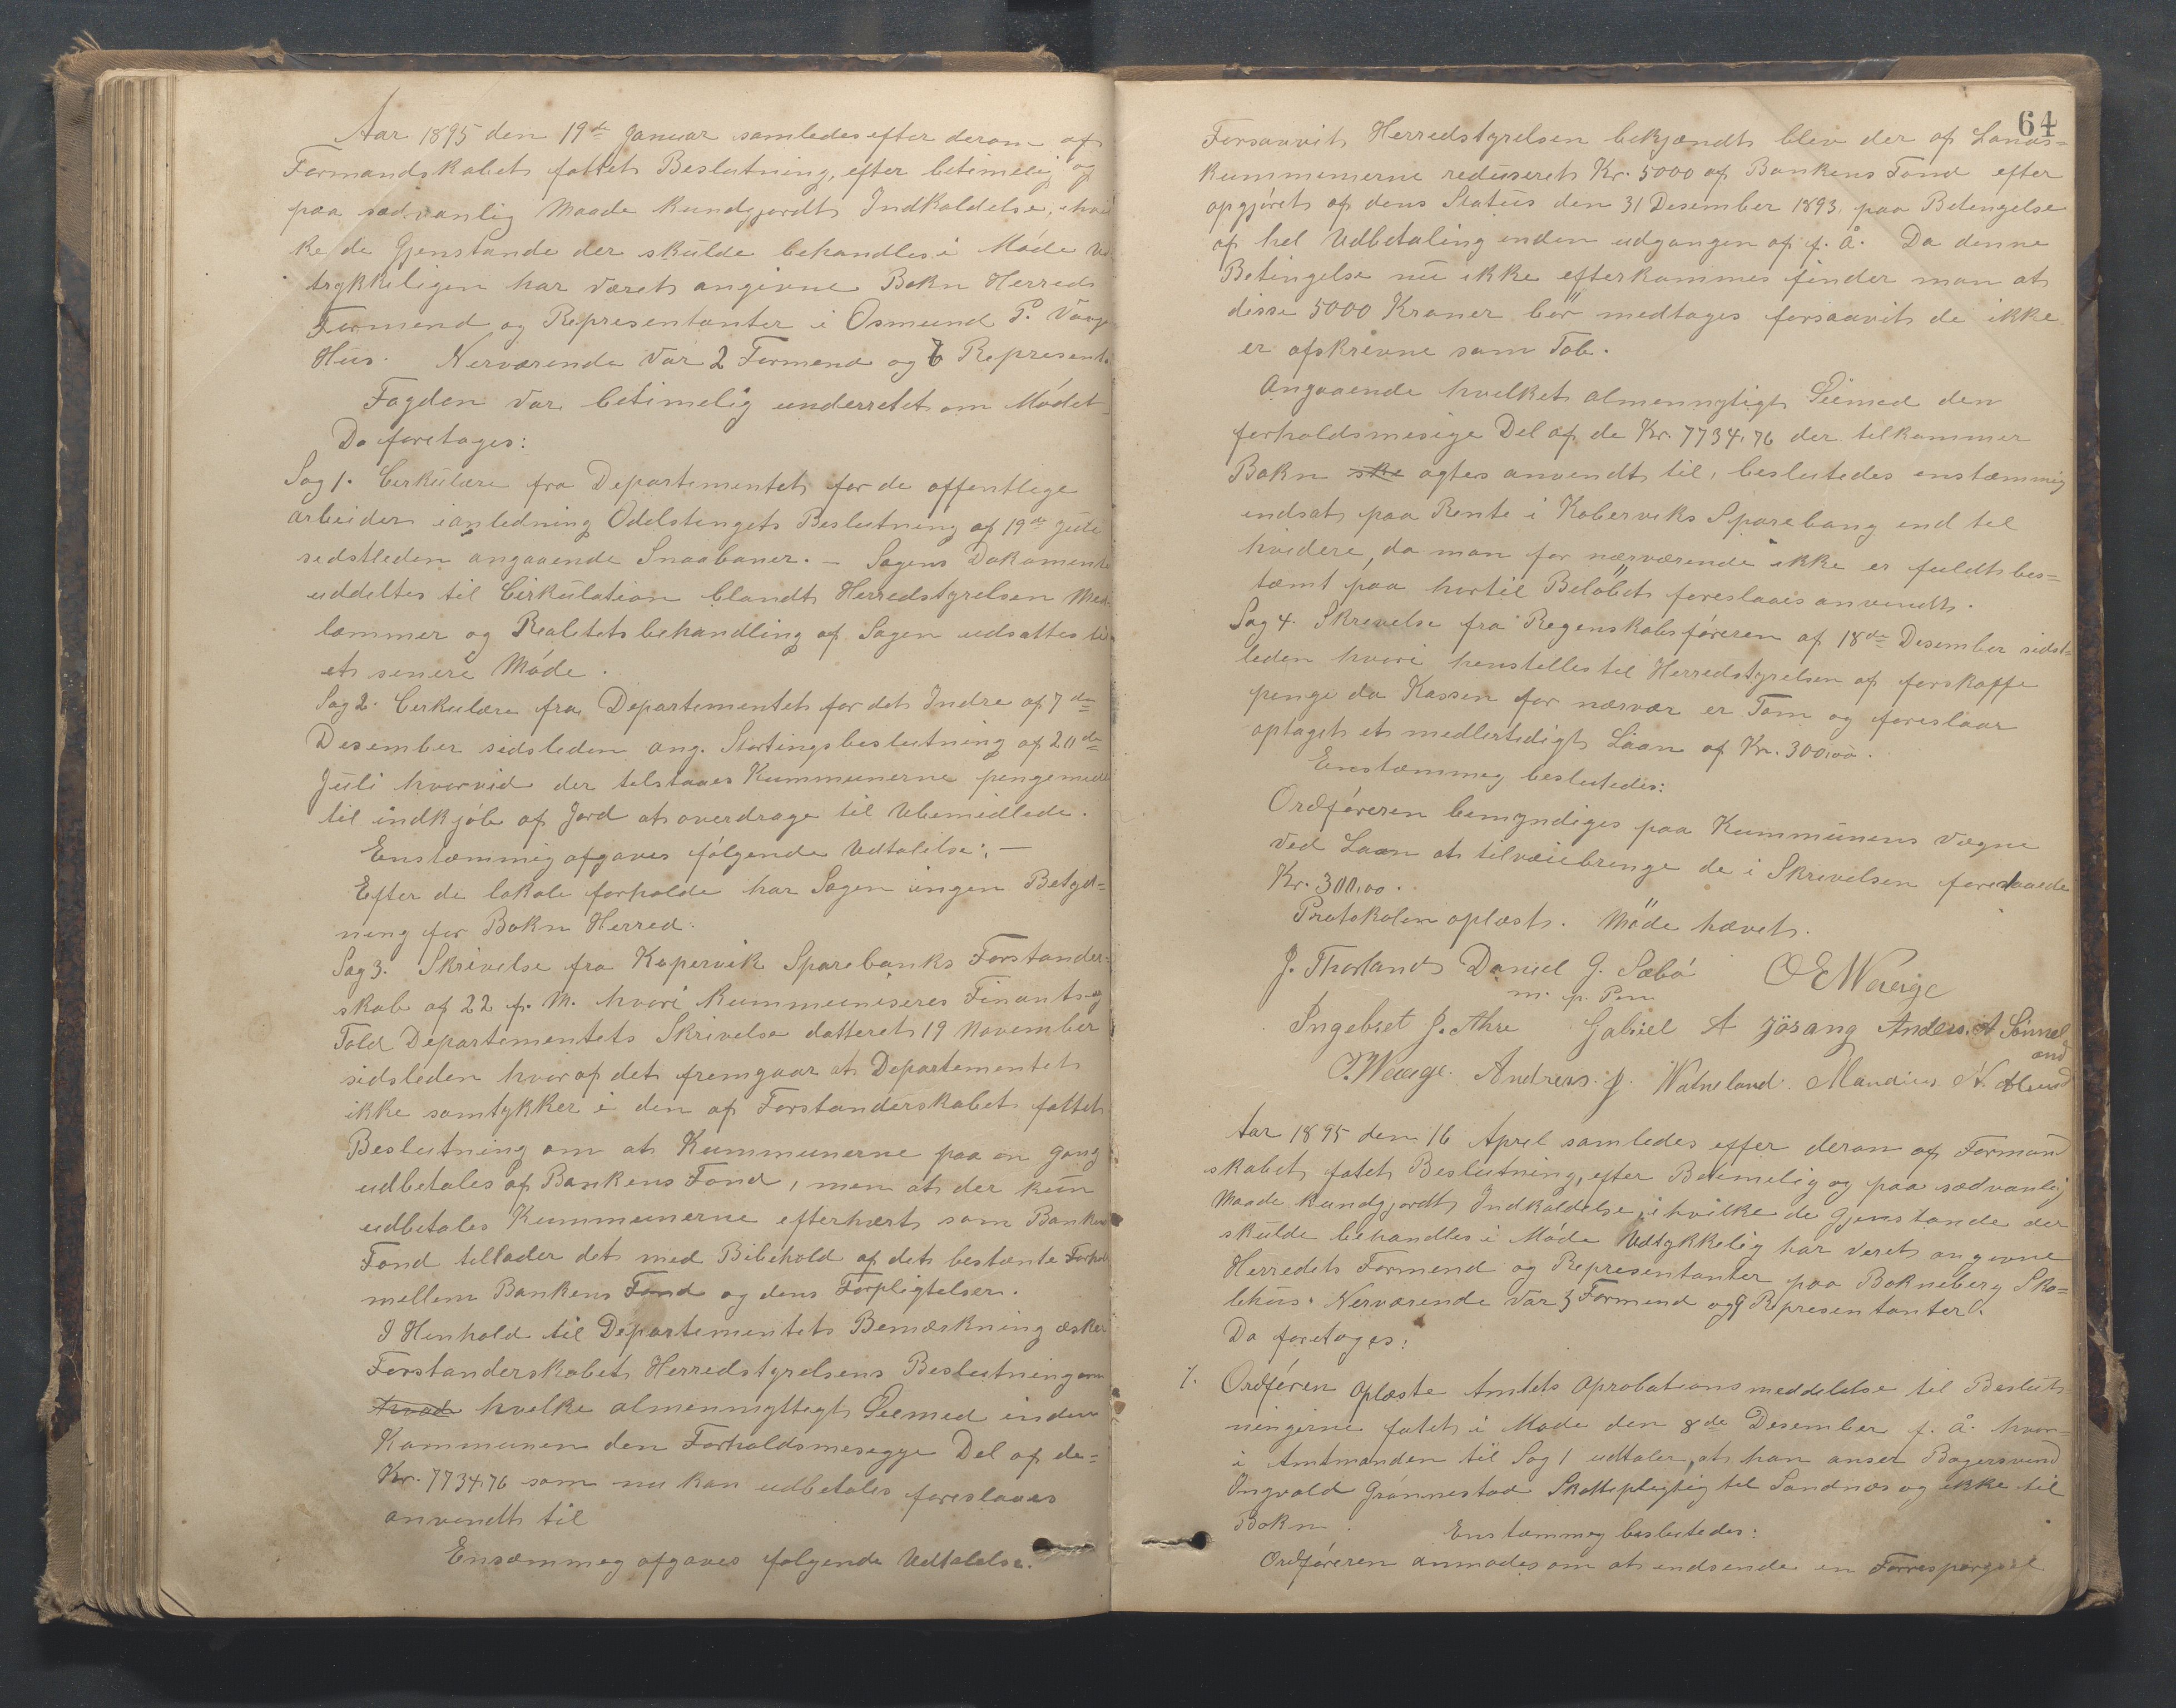 Aar 1895 den 19de Januar samledes efter derom af
Formandskabet fattet Beslutning, efter betimelig og
paa sædvanlig Maade kundgjordt Indkaldelse, i hvil
ke de Gjenstande der skulde behandles i Møde Ud
trykkeligen har været angivne Bokn Herreds
Formend og Representanter i Osmund P. Vaage
Hus. Nerværende var 2 Formend og 6 Represent.
Fogden var betimelig underretet om Mødet
Da foretages:
Sag 1. Cirkulære fra Departementet for de offentlege
arbeider ianledning Odelstingets Beslutning af 19de Juli
sidstleden angaaende Smaabaner. – Sagens Dokumente
uddeltes til Cirkulation blandt Herredstyrelsen Med
lemmer og Realitetsbehandling af Sagen udsattes til
et senere Møde.
Sag 2. Cirkulære fra Departementet for det Indre af 7de
Desember sidsleden ang. Stortingsbeslutning af 20de
Juli hvorvid der tilstaaes Kummunerne pengemidle
til indkjøb af Jord at overdrage til Ubemidlede.
Enstemmig afgaves følgende Udtalelse: –
Efter de lokale forholde har Sagen ingen Betyd=
ning for Bokn Herred.
Sag 3. Skrivelse fra Kopervik Sparebanks Forstander
skab af 22 f. M. hvori kummuniseres Finants og
Told Departementets Skrivelse datteret 19 November
sidsleden hvoraf det fremgaar at Departementet
ikke samtykker i den af Forstanderskabet fattet
Beslutning om at Kummunerne paa en gang
udbetales af Bankens Fond, men at der kun
udbetales Kummunerne efterhvert som Bankens
Fond tillader det med Bibehold af det bestemte Forhold
mellem Bankens Fond og dens Forpligtelser.
I Henhold til Departementets Bemærkning æsker
Forstanderskabet Herredstyrelsens Beslutning om
hvad hvelke almennyttegt Øiemed inden
Kommunen den Forholdsmesegge Del af de=
Kr. 7734,76 som nu kan udbetales foreslaaes
anvendt til
Ensemmeg afgaves følgende Udtalelse.
64
Forsaavit Herredstyrelsen bekjændt blev der af Lands=
kummunerne reduseret Kr. 5000 af Bankens Fond efter
opgjøret af dens Status den 31 Desember 1893, paa Betengelse
af hel Udbetaling inden udgangen af f. Å. Da denne
Betingelse nu ikke efterkommes finder man at
disse 5000 Kroner bør medtages forsaavit de ikke
er afskrevne som Tab.
Angaaende hvelket almennytigt Øiemed den
forholdsmesige Del af de Kr. 7734,76 der tilkommer
Bokn ske agtes anvendt til, beslutedes enstemmig
indsat paa Rente i Koberviks Sparebang end til
hvidere, da man for nærværende ikke er fuldt bes=
temt paa hvortil Beløbet foreslaaes anvendt.
Sag 4. Skrevelse fra Regenskabsføreren af 18de Desember sidst=
leden hvori henstelles til Herredstyrelsen af forskaffe
penge da Kassen for nærvær er Tom og foreslaar
optaget et medlertedigt Laan af Kr. 300,00.
Enstemmeg beslutedes:
Ordføreren bemyndiges paa Kummunens vegne
ved Laan at tilveiebrenge de i Skrevelsen foreslaaede
Kr. 300,00.
Protokolen oplæst. Møde hævet.
J. Thorland Daniel G. Sæbø O E Waage
m. p. Pen
Ingebret J. Ahre Gabriel A Jösang Anders A Sünnel
and
O. Waage. Andreas J. Watneland. Maudius N. Alsund
Aar 1895 den 16 April samledes effer derom af Formand
skabet fatet Beslutning, efter Betimelig og paa sædvanlig
Maade kundgjordt Indkaldelse, i hvilke de Gjenstande der
skulde behandles i Møde Udtykkelig har veret angevne
Herredets Formend og Representanter paa Bokneberg Sko=
lehus. Nerværende var 3 Formend og 9 Representanter.
Da foretages:
1. Ordføren oplæste Amtets Aprobationsmeddelelse til Beslut
ningerne fatet i Møde den 8de Desember f. Å. hvor=
i Amtmanden til Sag 1 udtaler, at han anser Bagersvend
Ingvald Grønnestad Skattepligtig til Sandnæs og ikke til
Bokn. Enstemmeg beslutedes:
Ordføreren anmodes om at indsende en Forrespørgsel